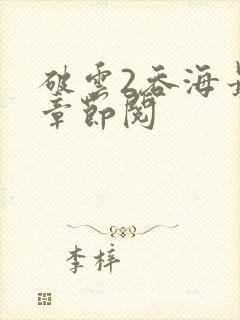 破雲2吞海
章節閱
李梓